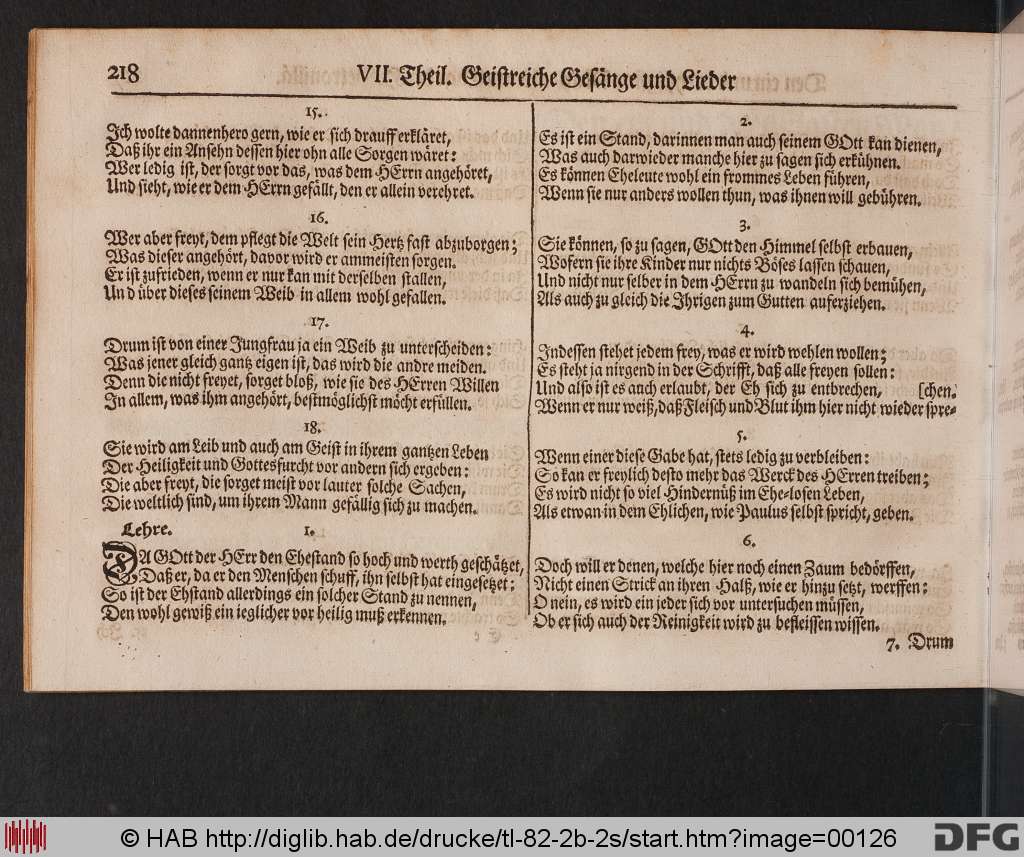 218
VII. Theil. Geistreiche Gesänge und Lieder
15.
Ich wolte dannenhero gern, wie er sich drauff erkläret,
Daß ihr ein Ansehn dessen hier ohn alle Sorgen wäret:
Wer ledig ist, der sorgt vor das, was dem HErrn angehöret,
Und sieht, wie er dem HErrn gefällt, den er allein verehret.
16.
Wer aber freyt, dem pflegt die Welt sein Hertz fast abzuborgen;
Was dieser angehört, davor wird er ammeisten sorgen.
Er ist zufrieden, wenn er nur kan mit derselben stallen,
Und über dieses seinem Weib in allem wohl gefallen.
17.
Drum ist von einer Jungfrau ja ein Weib zu unterscheiden:
Was jener gleich gantz eigen ist, das wird die andre meiden.
Denn die nicht freyet, sorget bloß, wie sie des HErren Willen
In allem, was ihm angehört, bestmöglichst möcht erfüllen.
18.
Sie wird am Leib und auch am Geist in ihrem gantzen Leben
Der Heiligkeit und Gottesfurcht vor andern sich ergeben:
Die aber freyt, die sorget meist vor lauter solche Sachen,
Die weltlich sind, um ihrem Mann gefällig sich zu machen.
Lehre. 1.
DA GOtt der HErr den Ehestand so hoch und werth geschätzet,
Daß er, da er den Menschen schuff, ihn selbst hat eingesetzet:
So ist der Ehstand allerdings ein solcher Stand zu nennen,
Den wohl gewiß ein ieglicher vor heilig muß erkennen.
2.
Es ist ein Stand, darinnen man auch seinem GOtt kan dienen,
Was auch darwieder manche hier zu sagen sich erkühnen.
Es können Eheleute wohl ein frommes Leben führen,
Wenn sie nur anders wollen thun, was ihnen will gebühren.
3.
Sie können, so zu sagen, GOtt den Himmel selbst erbauen,
Wofern sie ihre Kinder nur nichts Böses lassen schauen,
Und nicht nur selber in dem HErrn zu wandeln sich bemühen,
Als auch zu gleich die Ihrigen zum Gutten auferziehen.
4.
Indessen stehet jedem frey, was er wird wehlen wollen;
Es steht ja nirgend in der Schrifft, daß alle freyen sollen:
Und also ist es auch erlaubt, der Eh sich zu entbrechen, [chen.
Wenn er nur weiß, daß Fleisch und Blut ihm hier nicht wieder spre-
5.
Wenn einer diese Gabe hat, stets ledig zu verbleiben:
So kan er freylich desto mehr das Werck des HErren treiben;
Es wird nicht so viel Hindernüß im Ehe-losen Leben,
Als etwan in dem Ehlichen, wie Paulus selbst spricht, geben.
6.
Doch will er denen, welche hier noch einen Zaum bedörffen,
Nicht einen Strick an ihren Halß, wie er hinzu setzt, werffen:
O nein, es wird ein jeder sich vor untersuchen müssen,
Ob er sich auch der Reinigkeit wird zu befleissen wissen.
7. Drum
© HAB http://diglib.hab.de/drucke/tl-82-2b-2s/start.htm?image=00126
DFG